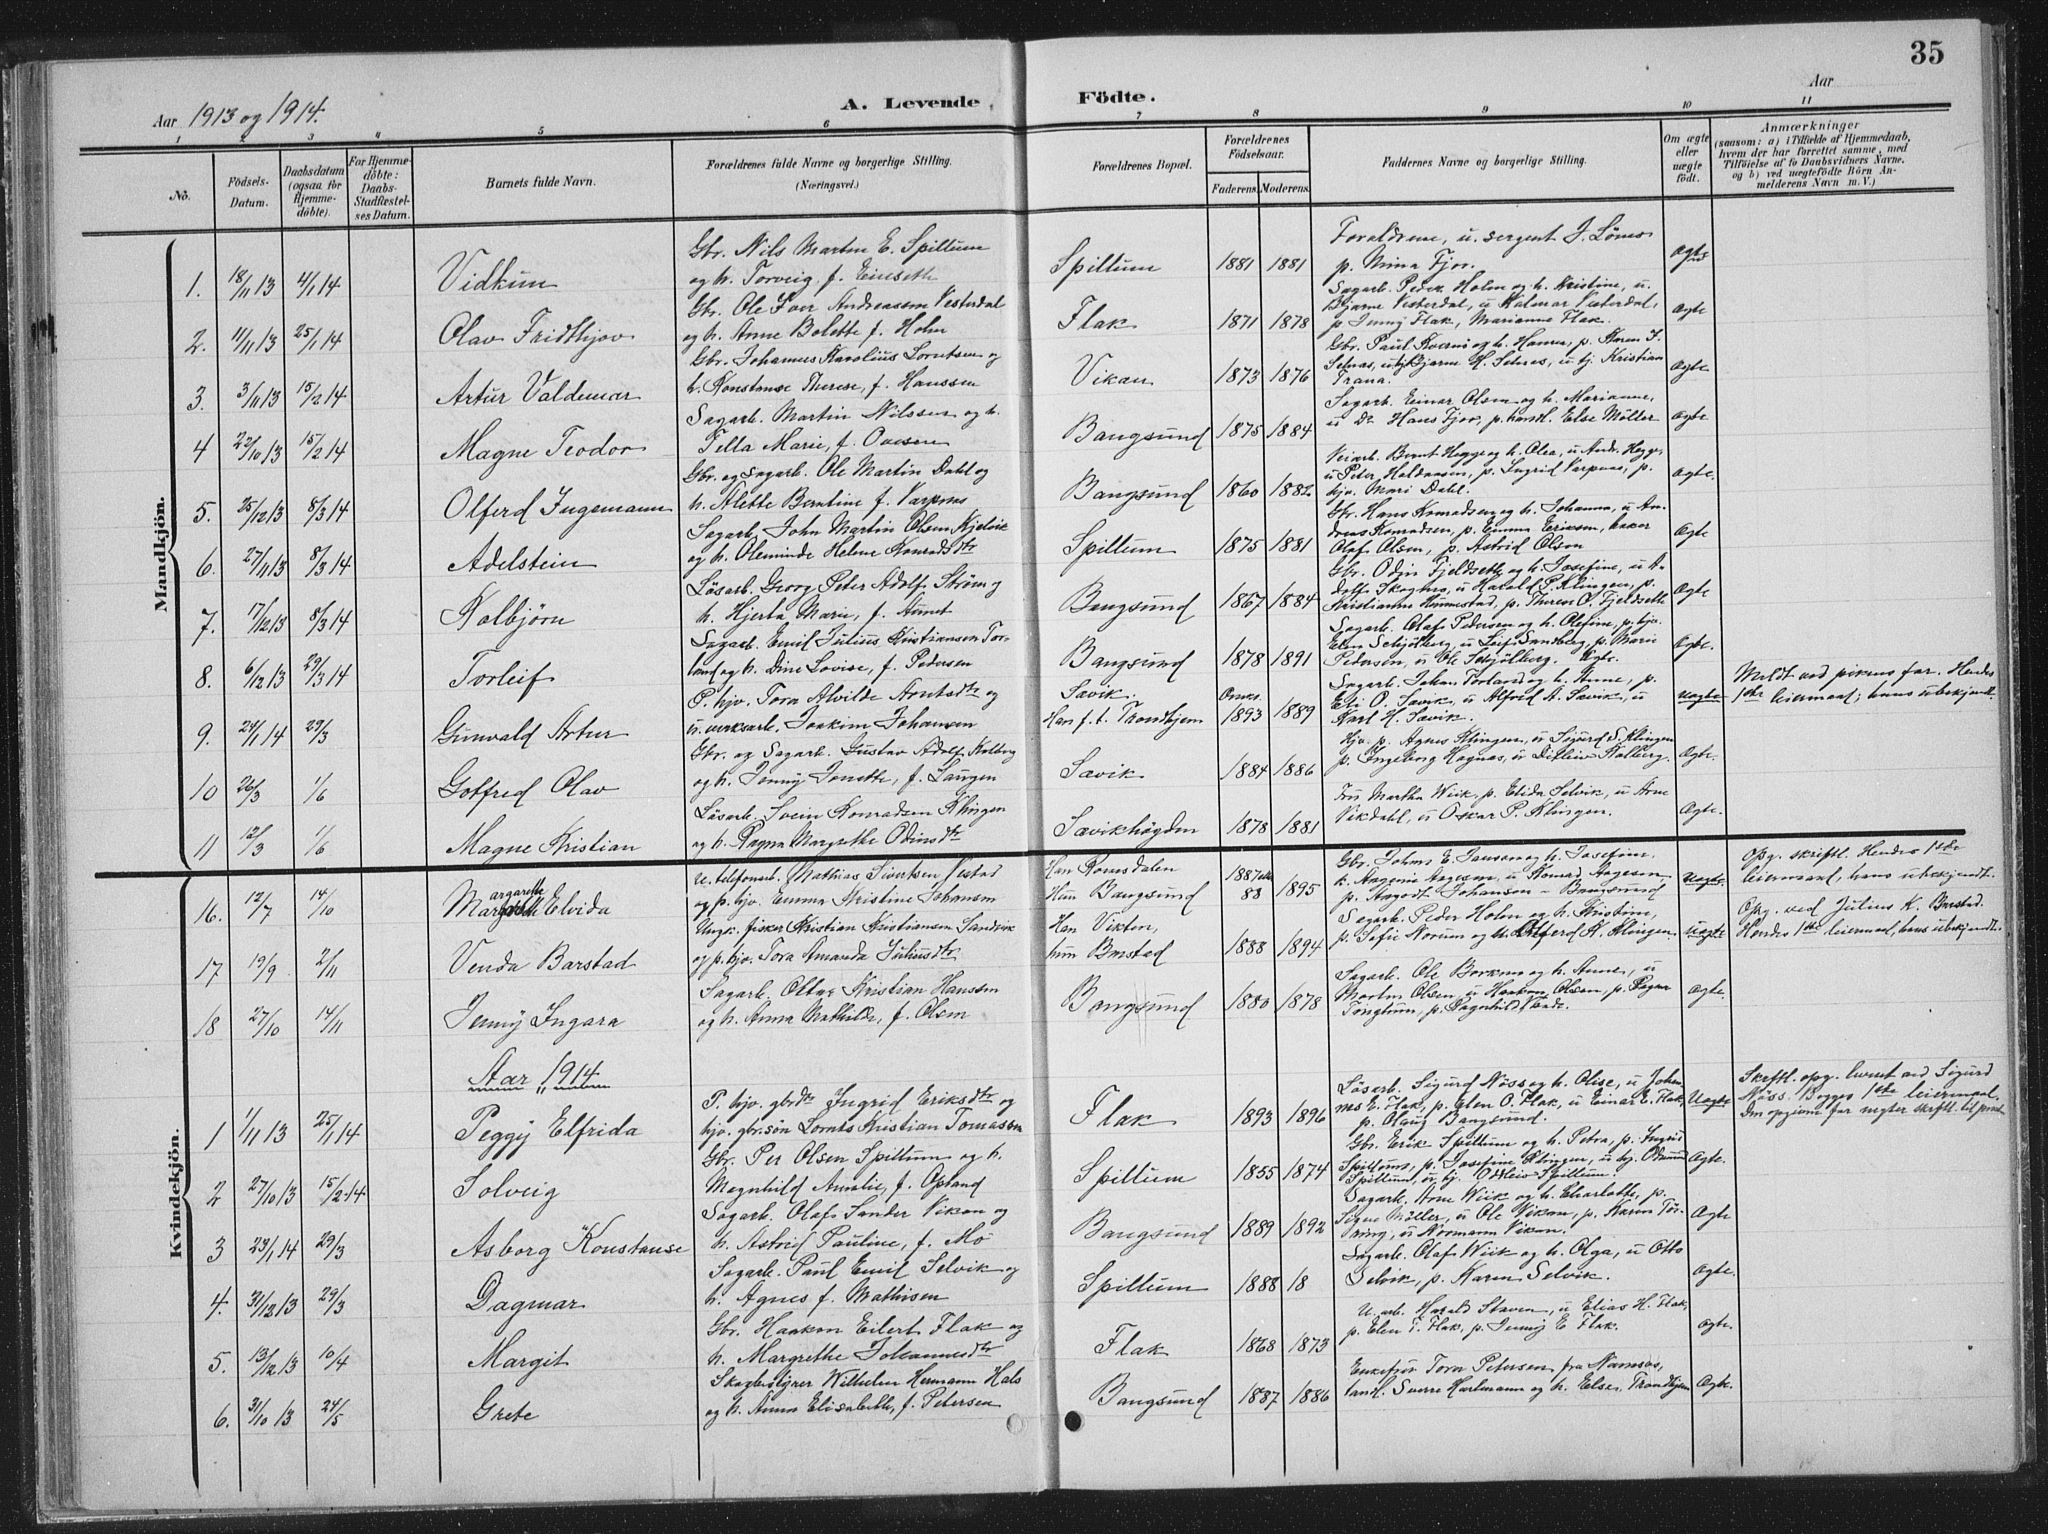 35
Aar 1913 og 1914.
A. Levende Födte.
Aar
1 2 3 4 5 6 7 8 9 10 11
No.
Födsels-Datum.
Daabsdatum (ogsaa for Hjemme-döbte).
For Hjemme-döbte: Daabs-Stadfæstel-ses Datum.
Barnets fulde Navn.
Forældrenes fulde Navne og borgerlige Stilling. (Næringsvei.)
Forældrenes Bopæl.
Forældrenes Födselsaar.
Faderens. Moderens.
Faddernes Navne og borgerlige Stilling.
Om ægte eller uægte födt.
Anmærkninger
(saasom: a) i Tilfælde af Hjemmedaab, hvem der har forrettet samme, med Tilföielse af to Daabsvidners Navne. og b) ved uægtefödte Börn An-melderens Navn m. V.)
Mandkjön.
1. 18/11 13 4/1 14 Vidkun
Gbr. Nils Martin E. Spillum
og h. Torveig f. Eineseth
Spillum 1881 1881
Forældrene, u. sergent J. Lömo
p. Mina Fjor.
Ægte
2. 11/11 13 25/1 14 Olav Fridthjov
Gbr. Ole Iver Andreassen Vesterdal
og h. Anne Bolette f. Holm
Flak 1871 1878
Sagarb. Peder Holm og h. Kristine, u.
Bjarne Vesterdal, u Halmar Vesterdal,
p Jenny Flak, Marianne Flak.
Ægte
3. 3/11 13 15/2 14 Artur Valdemar
Gbr. Johannes Karolius Lorntsen og
h. Konstanse Therese, f. Hanssen
Vikan 1873 1876
Gbr. Paul og h. Hanna, p. Karen J.
Setnas, H. Setnas, u hj. Kristian
Trana.
Ægte
4 22/10 13 15/2 14 Magne Teodor
Sagarb. Martin Nilssen og h.
Tella Marie, f. Ovesen
Bangsund 1875 1884
Sagarb. Einar Olsen og h. Marianne,
u Dr Hans Fjor, p. handl. Else Möller
Ægte
5. 25/12 13 8/3 14 Olferd Ingemann
Gbr. og Sagarb. Ole Martin Dahl og
h. Alette Berntine f. Varpnes
Bangsund 1860 1882
Veiarb. Bernt Hegge og h. Olea, u Andr. Hegge,
u Peter Haldorsen, p. Ingrid Varpnes, p.
hjv. Mari Dahl.
Ægte.
6. 27/11 13 8/3 14 Adelstein
Sagarb. John Martin Olsen Kjelvik
og h. Oleminde Helene Konradsdtr
Spillum 1875 1881
Gbr. Hans Konradsen og h. Johanna, u An-
dreas Konradsen, p. Emma Eriksen, baker
Olaf Olsen, p. Astrid Olsen
Ægte
7. 17/12 13 8/3 14 Kolbjörn
Lösarb. Georg Peter Adolf Ström og
h. Hjerta Marie, f. Aunet
Bangsund 1867 1884
Gbr. Odin Fjeldseth og h. Josefine, u A-
dolf Skogmo, u Harald P. Klingen, p.
Kristianne Hummestad, p. Therese O. Fjeldseth
Ægte
8. 6/12 13 29/3 14 Torleif
Sagarb. Emil Julius Kristiansen Tor-
land og h. Dine Lovise, f. Pedersen
Bangsund 1878 1891
Sagarb. Olaf Pedersen og h. Olefine, p. hjv.
Elen Schjölberg, u Leif Sandberg, p. Marie
Pedersen, u Ole Schjölberg.
Ægte.
9. 24/1 14 29/3 Gunvald Artur
P. hjv. Tora Alvilde Arntsdtr og
u. verksarb. Joakim Johansen
Savik.
Han f. t. Trondhjem 1893 1889
Sagarb. Johan Torland og h. Anne, p.
Eli O. Savik, u Alfred A. Savik, u
Karl H. Savik.
Uægte
Meldt ved pikens far. Hendes
1ste leiermaal; hans ubekjendt.
10 26/3 1/6 Gotfred Olav
Gbr. og Sagarb. Gustav Adolf Kalberg
og h. Jenny Jonette, f. Laugen
Savik 1884 1886
Hjv. p. Agnes Klingen, u Sigurd S. Klingen
p. Ingeborg Hagnas, u Ditlew Kalberg.
Ægte.
11 12/3 1/6 Magne Kristian
Lösarb. Svein Konradsen Klingen
og h. Ragna Margrethe Odinsdtr
Savikhögden 1878 1881
Fru Martha Wiik, p. Elida Selvik, u Arne
Vikdahl, u Oskar P. Klingen.
Ægte.
Kvindekjön.
16. 12/7 14/10 Margarethe Elvida
U. telefonarb. Mathias Sivertsen
og p. hjv. Emma Kristine Johansen
Han Romsdalen
Hun Bangsund 1887 88 1895
Gbr. Johns E. Jansen og h. Josefine.
h. Aagesen, u Konrad Aagesen
p. Aagodt Johanson - Bangsund
Uægte.
Opg. skriftl. Hendes 1ste
leiermaal, hans ubekjendt.
17 19/9 2/11 Venda Barstad
Ungk. fisker Kristian Kristiansen Sandvik
og p. hjv. Tora Amanda Juliusdtr
Han Vikten,
hun Barstad 1888 1894
Sagarb. Peder Holm og h. Kristine,
p. Sofie Norum og u. Olferd K. Klingen.
Uægte
Opg. ved Julius K. Barstad.
Hendes 1ste leiermaal, hans ubekjendt.
18 27/10 14/11 Jenny Ingara
Sagarb. Ottar Kristian Hanssen
og h. Anna Mathilde, f. Olsen
Bangsund 1880 1878
Sagarb. Ole Borkmo og h. Anne, u
Morten Olsen, u Haakon Olsen, p. Ragna
Tongtum, p. Dagerhild
Ægte.
Aar 1914
1 1/11 13 25/1 14 Peggy Elfrida
P. hjv. gbrdtr Ingrid Eriksdtr og
hjv. gbr.sön Lornts Kristian Tomassen
Flak 1893 1896
Lösarb. Sigurd Nöss og h. Olise, u Johan-
nes E. Flak, p. Elen O. Flak, u Einar E. Flak,
p. Olaug Bangsund.
Uægte
Skriftl. opg. levert ved Sigurd
Nöss. Begges 1ste leiermaal.
Den opgivne far negter skriftl. til prest
2 27/10 13 15/2 14 Solveig
Gbr. Per Olsen Spillum og h.
Magnhild Amalie, f. Opland
Spillum 1855 1874
Gbr. Erik Spillum og h. Petra, p. Ingrid
Spillum, p. Josefine Klingen, u hj. Odmund
Spillum, u hj. Oddleiv Spillum.
Ægte.
3 23/1 14 29/3 Asborg Konstanse
Sagarb. Olaf Sander Vikan og
h. Astrid Pauline, f. Mo
Bangsund 1889 1892
Sagarb. Arne Wiik og h. Charlotte, p.
Signe Möller, u Ole Vikan, p. Karen Tör-
ring, u Normann Vikan.
Ægte
4. 31/12 13 29/3 Dagmar
Sagarb. Paul Emil Selvik og
h. Agnes f. Mathisen
Spillum 1888 18
Sagarb. Olaf Wiik og h. Olga, u Otto
Selvik, p. Karen Selvik.
Ægte.
5. 13/12 13 10/4 Margit
Gbr. Haakon Eilert Flak og
h. Margrethe Johannesdtr
Flak 1868 1873
U. arb. Harald Staven, u Elias H. Flak,
p. Elen T. Flak, p. Jenny E Flak.
Ægte.
6. 31/10 13 24/5 Grete
Skogbestyrer Wilhelm Hermann Hals
og h. Anna Elisabeth, f. Petersen
Bangsund 1887 1886
Enkefru Tora Petersen fra Namsos,
tandl. Sverre Hartmann og h. Else, Trondhjem
Ægte.